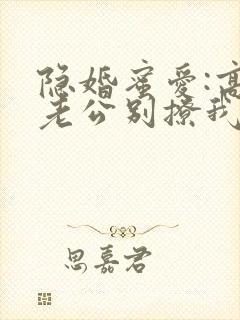 隐婚蜜爱:高
老公别撩我
思嘉君